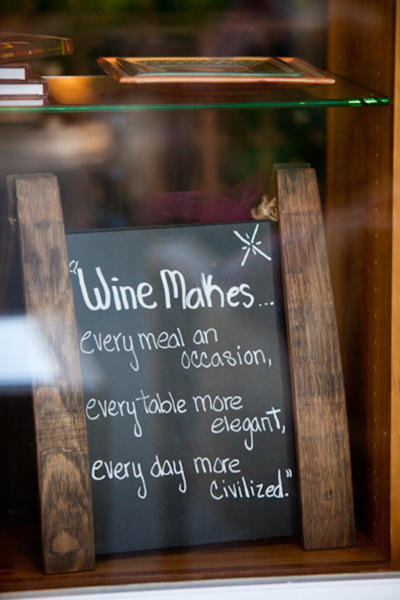 "Wine Makes...
every meal an
occasion,
every table more
elegant,
every day more
civilized."